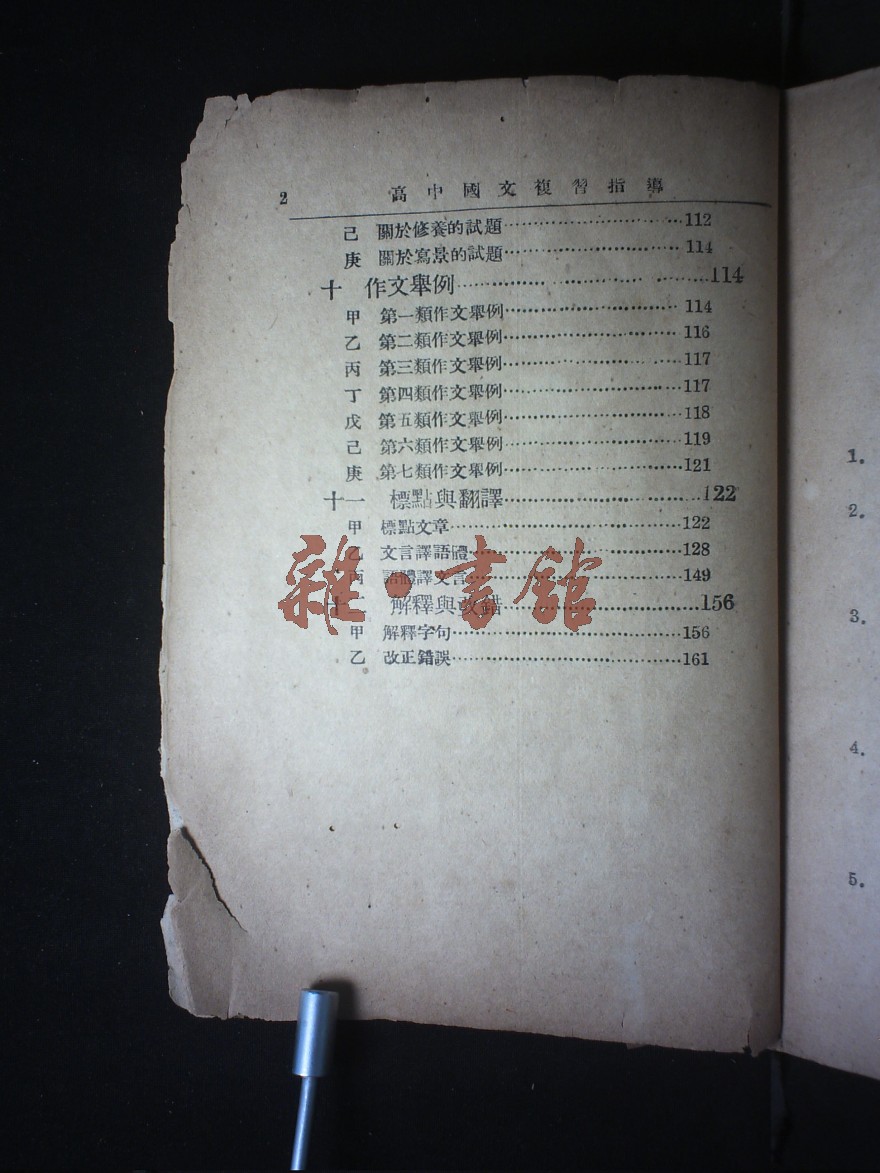 2 高中國文複習指導
己 關於修養的試題 112
庚 關於寫景的試題 114
十 作文舉例 114
甲 第一類作文舉例 114
乙 第二類作文舉例 116
丙 第三類作文舉例 117
丁 第四類作文舉例 117
戊 第五類作文舉例 118
己 第六類作文舉例 119
庚 第七類作文舉例 121
十一 標點與翻譯 122
甲 標點文章 122
乙 文言譯語體 128
丙 語體譯文言 149
十二 解釋與改錯 156
甲 解釋字句 156
乙 改正錯誤 161
雜·書館
1.
2.
3.
4.
5.